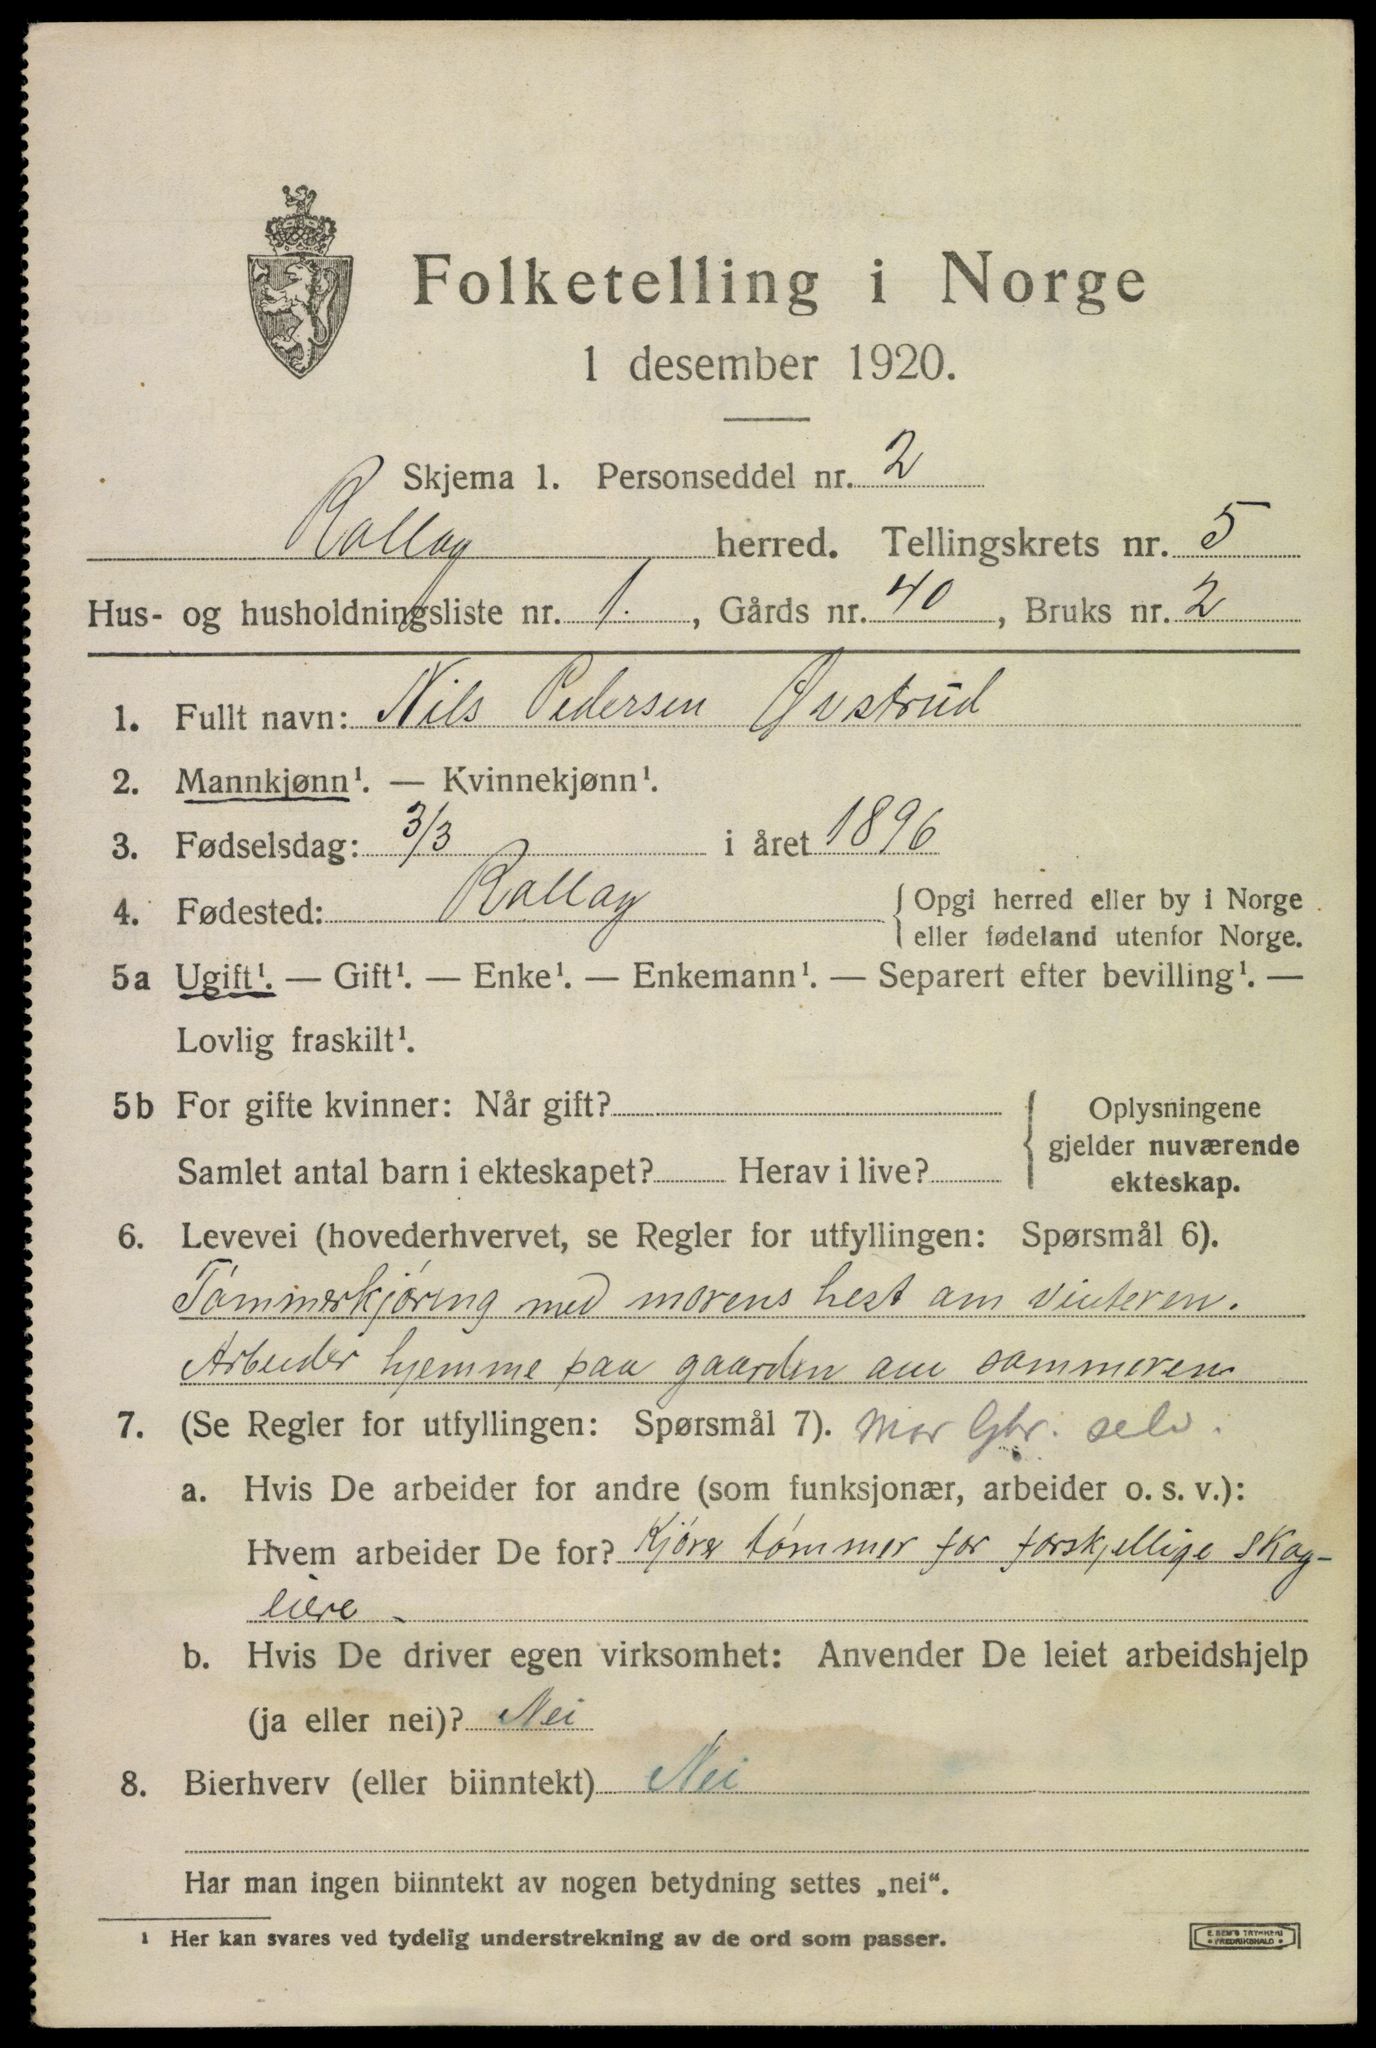 Folketelling i Norge
1 desember 1920.
Skjema 1. Personseddel nr. 2
Rollag herred. Tellingskrets nr. 5
Hus- og husholdningsliste nr. 1. , Gårds nr. 40 , Bruks nr. 2
1. Fullt navn: Nils Pedersen Øvstrud
2. Mannkjønn¹. — Kvinnekjønn¹.
3. Fødselsdag: 3/3 i året 1896
4. Fødested: Rollag { Opgi herred eller by i Norge
eller fødeland utenfor Norge.
5a Ugift¹. — Gift¹. — Enke¹. — Enkemann¹. — Separert efter bevilling¹. —
Lovlig fraskilt¹.
5b For gifte kvinner: Når gift?
Samlet antal barn i ekteskapet? Herav i live?
{ Oplysningene
gjelder nuværende
ekteskap.
6. Levevei (hovederhvervet, se Regler for utfyllingen: Spørsmål 6).
Tømmerkjøring med morens hest om vinteren.
Arbeider hjemme paa gaarden om sommeren
7. (Se Regler for utfyllingen: Spørsmål 7). Mor Gbr. selv.
a. Hvis De arbeider for andre (som funksjonær, arbeider o. s. v.):
Hvem arbeider De for? Kjører tømmer for forskjellige skog-
eiere.
b. Hvis De driver egen virksomhet: Anvender De leiet arbeidshjelp
(ja eller nei)? Nei
8. Bierhverv (eller biinntekt) Nei
Har man ingen biinntekt av nogen betydning settes „nei“.
¹ Her kan svares ved tydelig understrekning av de ord som passer.
E. SEM'S TRYKKERI
• FREDRIKSHALD •